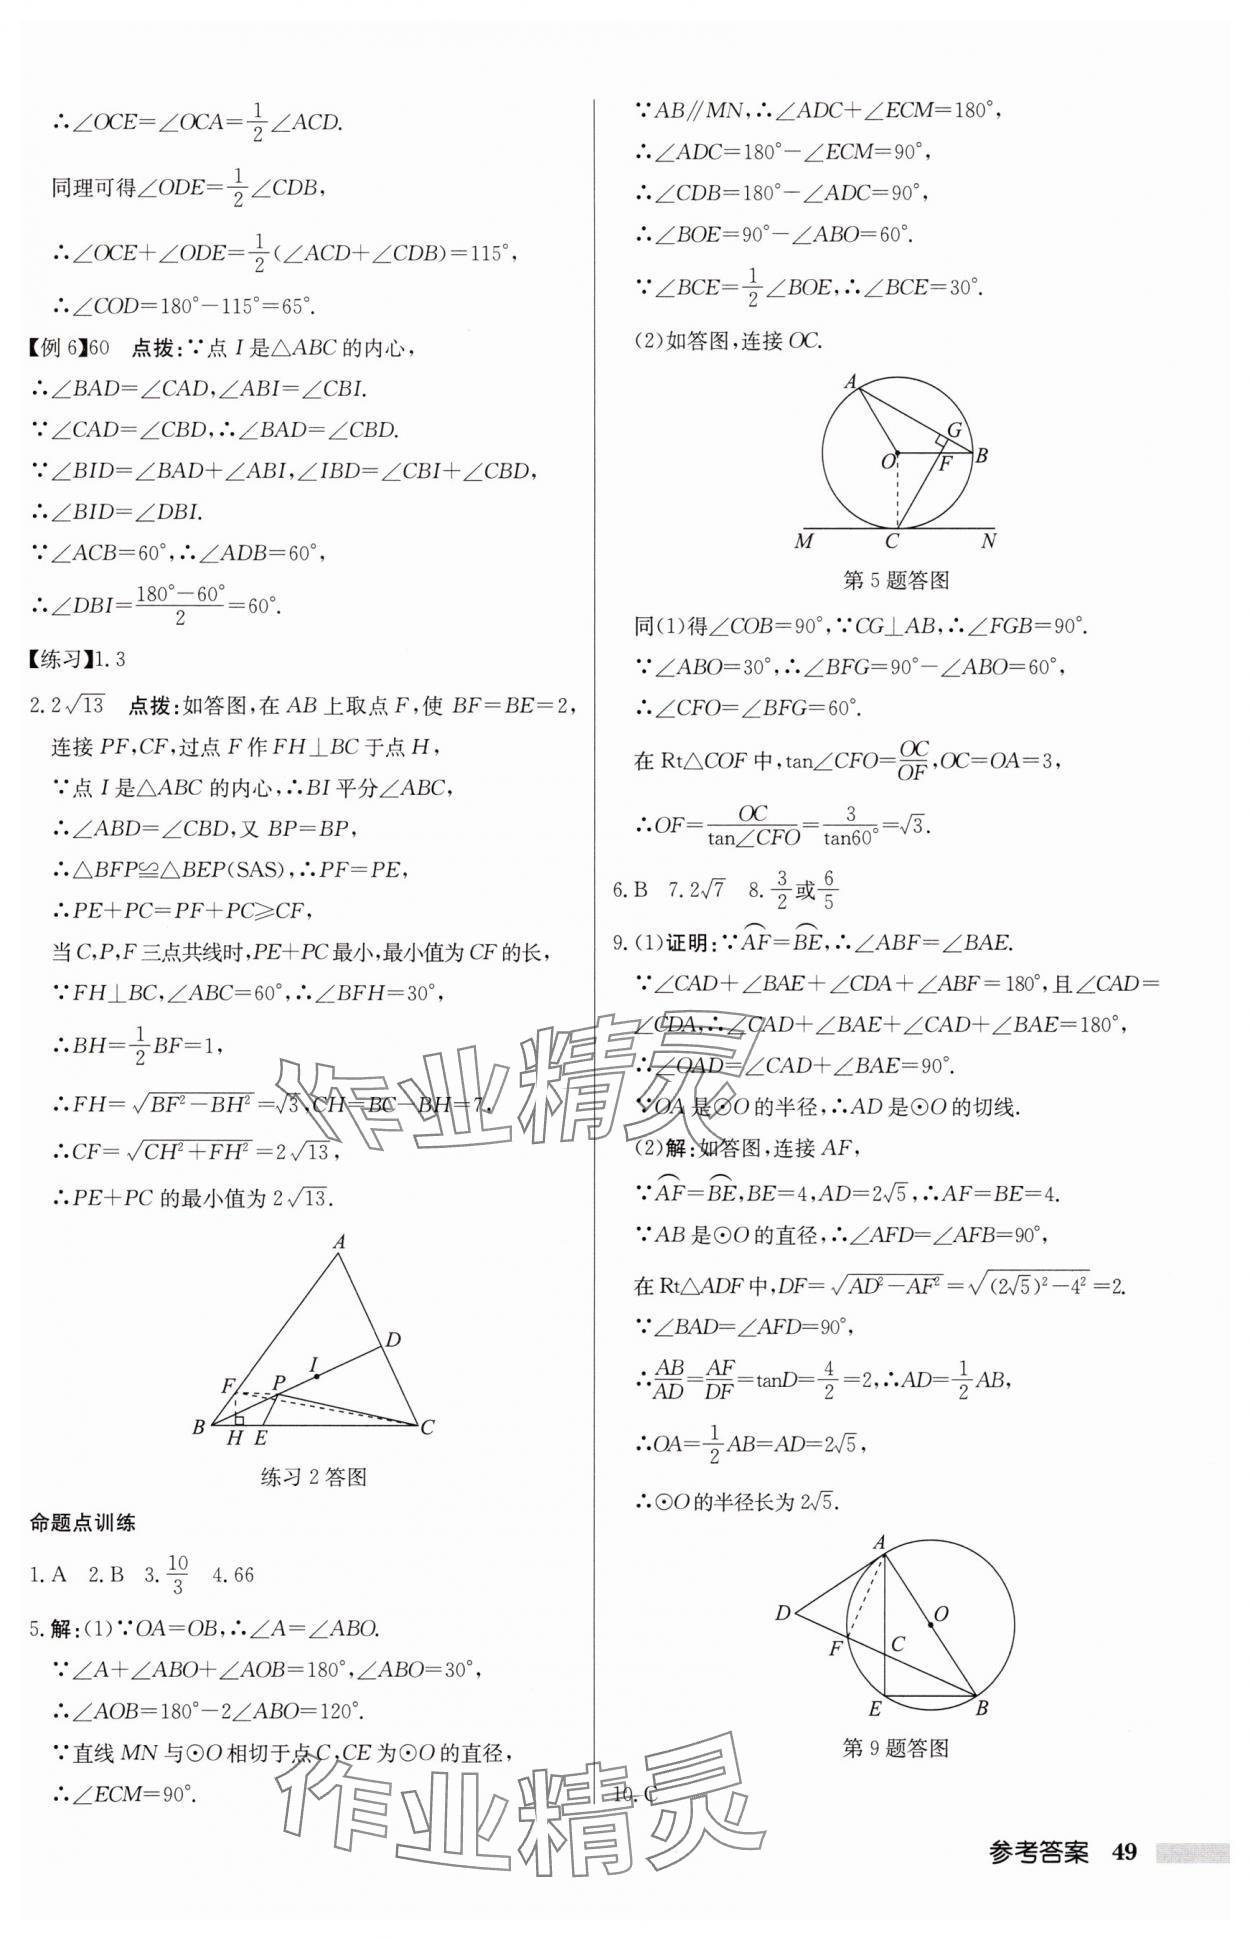 ∴∠OCE=∠OCA=1/2∠ACD.
同理可得∠ODE=1/2∠CDB,
∴∠OCE+∠ODE=1/2(∠ACD+∠CDB)=115°,
∴∠COD=180°-115°=65°.
【例6】60 点拨:∵点I是△ABC的内心,
∴∠BAD=∠CAD,∠ABI=∠CBI.
∵∠CAD=∠CBD,∴∠BAD=∠CBD.
∵∠BID=∠BAD+∠ABI,∠IBD=∠CBI+∠CBD,
∴∠BID=∠DBI.
∵∠ACB=60°,∴∠ADB=60°,
∴∠DBI=(180°-60°)/2=60°.
【练习】1.3
2.2√13 点拨:如答图,在AB上取点F,使BF=BE=2,
连接PF,CF,过点F作FH⊥BC于点H,
∵点I是△ABC的内心,∴BI平分∠ABC,
∴∠ABD=∠CBD,又BP=BP,
∴△BFP≌△BEP(SAS),∴PF=PE,
∴PE+PC=PF+PC≥CF,
当C,P,F三点共线时,PE+PC最小,最小值为CF的长,
∵FH⊥BC,∠ABC=60°,∴∠BFH=30°,
∴BH=1/2BF=1,
∴FH=√(BF²-BH²)=√3,CH=BC-BH=7,
∴CF=√(CH²+FH²)=2√13,
∴PE+PC的最小值为2√13.
A
D
I
F
P
B
H
E
C
练习2答图
命题点训练
1.A 2.B 3.10/3 4.66
5.解:(1)∵OA=OB,∴∠A=∠ABO.
∵∠A+∠ABO+∠AOB=180°,∠ABO=30°,
∴∠AOB=180°-2∠ABO=120°.
∵直线MN与⊙O相切于点C,CE为⊙O的直径,
∴∠ECM=90°.
∵AB∥MN,∴∠ADC+∠ECM=180°,
∴∠ADC=180°-∠ECM=90°,
∴∠CDB=180°-∠ADC=90°,
∴∠BOE=90°-∠ABO=60°.
∵∠BCE=1/2∠BOE,∴∠BCE=30°.
(2)如答图,连接OC.
A
G
O
F
B
M
C
N
第5题答图
同(1)得∠COB=90°,∵CG⊥AB,∴∠FGB=90°.
∵∠ABO=30°,∴∠BFG=90°-∠ABO=60°,
∴∠CFO=∠BFG=60°.
在Rt△COF中,tan∠CFO=OC/OF,OC=OA=3,
∴OF=OC/tan∠CFO=3/tan60°=√3.
6.B 7.2√7 8.3/2或6/5
9.(1)证明:∵⌒AF=⌒BE,∴∠ABF=∠BAE.
∵∠CAD+∠BAE+∠CDA+∠ABF=180°,且∠CAD=
∠CDA,∴∠CAD+∠BAE+∠CAD+∠BAE=180°,
∴∠OAD=∠CAD+∠BAE=90°.
∵OA是⊙O的半径,∴AD是⊙O的切线.
(2)解:如答图,连接AF,
∵⌒AF=⌒BE,BE=4,AD=2√5,∴AF=BE=4.
∵AB是⊙O的直径,∴∠AFD=∠AFB=90°,
在Rt△ADF中,DF=√(AD²-AF²)=√((2√5)²-4²)=2.
∵∠BAD=∠AFD=90°,
∴AB/AD=AF/DF=tanD=4/2=2,∴AD=1/2AB,
∴OA=1/2AB=AD=2√5,
∴⊙O的半径长为2√5.
A
D
O
F
C
E
B
第9题答图
10.C
作业精灵
作业精灵
参考答案 49